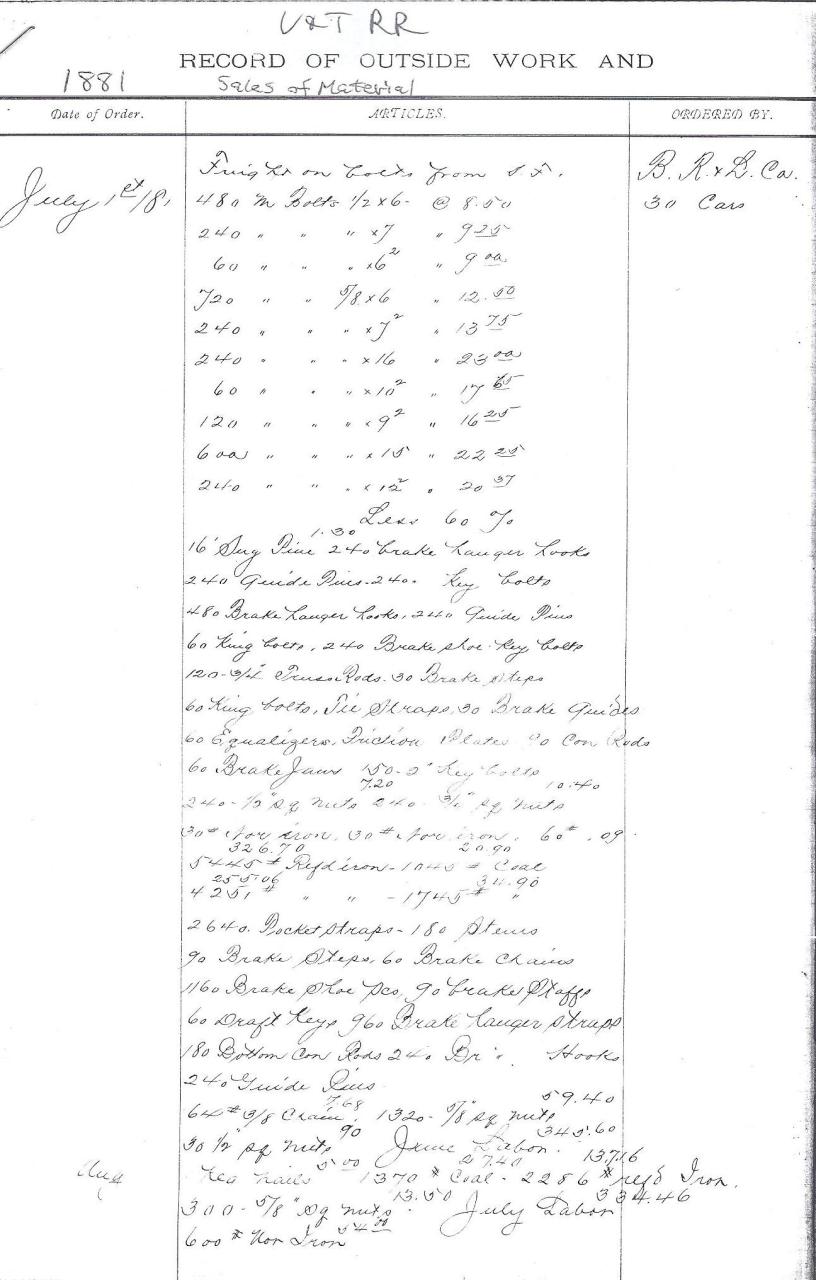 V&T RR
RECORD OF OUTSIDE WORK AND
1881 Sales of Material
Date of Order. ARTICLES. ORDERED BY.
Freight on bolts from S.F. B. R. & L. Co.
July 1st/81 480 M Bolts 1/2 x 6 - @ 8.50 30 Cars
240 " " " x 7 " 9 25
60 " " " x 6 2 " 9 00
720 " " 5/8 x 6 " 12.50
240 " " " x 7 2 " 13 75
240 " " " x 16 " 23 00
60 " " " x 10 2 " 17
120 " " " x 9 2 " 16 25
600 " " " x 15 " 22 25
240 " " " x 12 2 " 20 37
Less 60 %
1.30
16' Sug Pine 240 brake hanger hooks
240 Guide Pins - 240 - Key bolts
480 Brake hanger hooks, 240 Guide Pins
60 King bolts, 240 Brake shoe key bolts
120 - 3/4" Truss Rods. 30 Brake Steps
60 King bolts, Tie Straps, 30 Brake Guides
60 Equalizers, Friction Plates 90 Con Rods
60 Brake Jaws 150 - 2" Key bolts
7.20 10.40
240 - 1/2" sq nuts 240 - 3/4" sq nuts
30# Nor iron, 30# Nor iron, 60# .09
326.70 20.90
5445# Refd iron - 1045# Coal
255.06 34.90
4251# " " - 1745# "
2640. Pocket straps - 180 Stems
90 Brake Steps, 60 Brake Chains
1160 Brake Shoe pcs, 90 brake Staffs
60 Draft Keys, 960 Brake hanger straps
180 Bottom Con Rods 240 Br " Hooks
240 Guide Pins
7.68 59.40
64# 3/8 Chain, 1320 - 5/8" sq nuts
90 345.60
30 1/2" sq nuts June Labor.
5.00 27.40 137.16
Aug Keg nails 1370# Coal - 2286# refd Iron.
13.50 334.46
300 - 5/8" Sq nuts. July Labor
54.00
600# Nor Iron